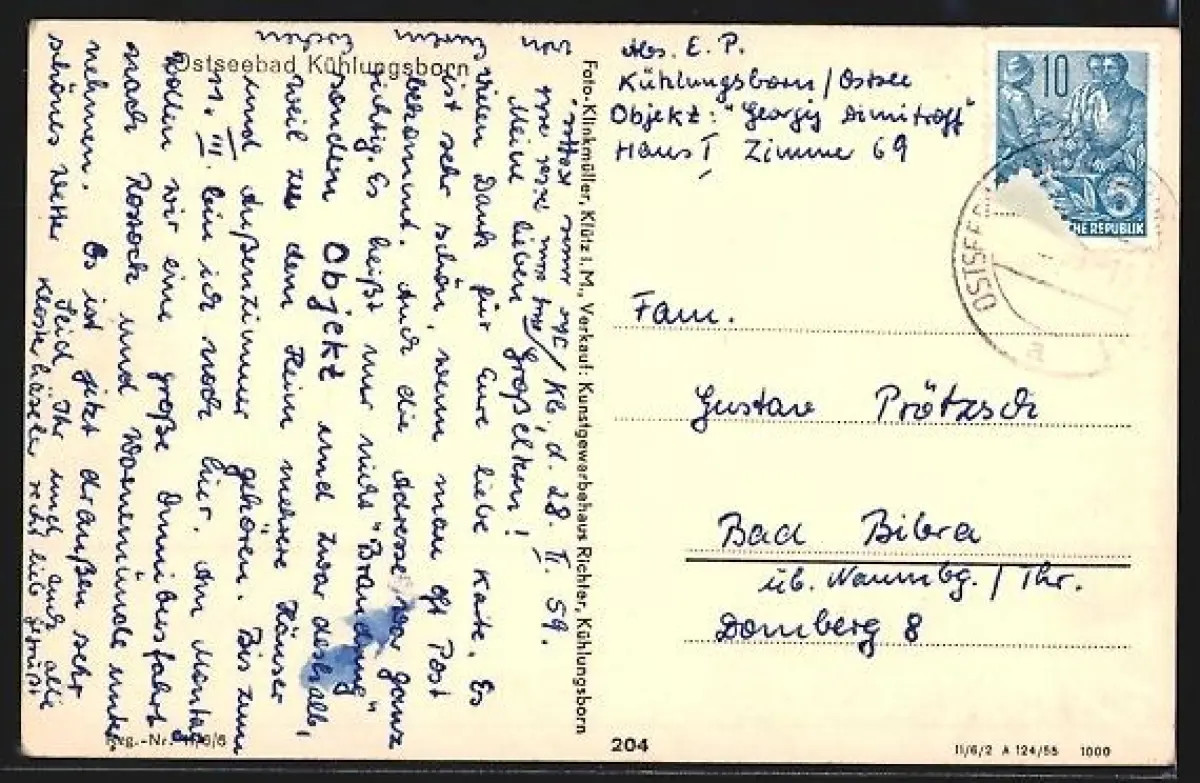 Ostseebad Kühlungsborn
Kbg/Kb, d. 28. II. 59.
Meine lieben Großeltern!
Vielen Dank für Eure liebe Karte. Es
ist sehr schön, wenn man oft Post
bekommt. Auch die Adresse war ganz
richtig. Es heißt nur nicht "Brandung"
sondern Objekt und zwar deshalb,
weil zu dem Heim mehrere Häuser
und Außenzimmer gehören. Bis zum
11. III. bin ich noch hier. Am Montag
wollen wir eine große Omnibusfahrt
nach Rostock und Warnemünde unter-
nehmen. Es ist jetzt draußen sehr
schönes Wetter
Seid Ihr und auch alle
Klosterhäseler recht lieb gegrüßt
von
Eurem
Foto-Klinkmüller, Klütz i. M., Verkauf: Kunstgewerbehaus Richter, Kühlungsborn
Reg.-Nr. 11/6/6
Abs. E. P.
Kühlungsborn/Ostsee
Objekt: "Georgij Dimitroff"
Haus I Zimmer 69
10
6
CHE REPUBLIK
OSTSEEB
a
Fam.
Gustav Prötzsch
Bad Bibra
üb. Naumbg. / Thr.
Domberg 8
204
II/6/2 A 124/55 1000